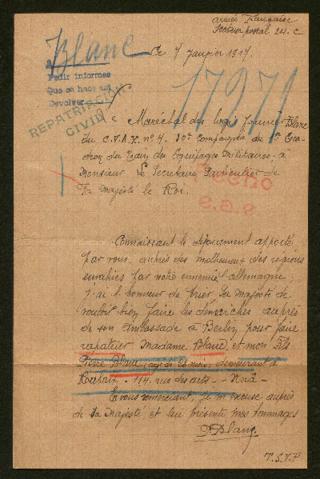 Armée Française
Secteur postal 24. C
Blanc
Le 7 Janvier 1917
17271
Pedir informes
Que se hace
Devolver
REPATRIACION
CIVIL
Le Maréchal des logis Blanc
du C.V.A.X. nº 4. Compagnie du Esca-
dron du Train des Equipages Militaires, à
Monsieur le Secrétaire Particulier de
Sa Majesté le Roi.
Connaissant le dévouement apporté
par vous, auprès des malheureux des régions
envahies par notre ennemie l'allemagne
j'ai l'honneur de prier Sa Majesté de
vouloir bien faire des démarches auprès
de son Ambassade à Berlin, pour faire
rapatrier Madame Blanc, et mon fils
Blanc, demeurant à
Roubaix - 114, rue des arts - Nord
En vous remerciant, je m'excuse auprès
de Sa Majesté, et lui présente mes hommages
Blanc
T.S.V.P